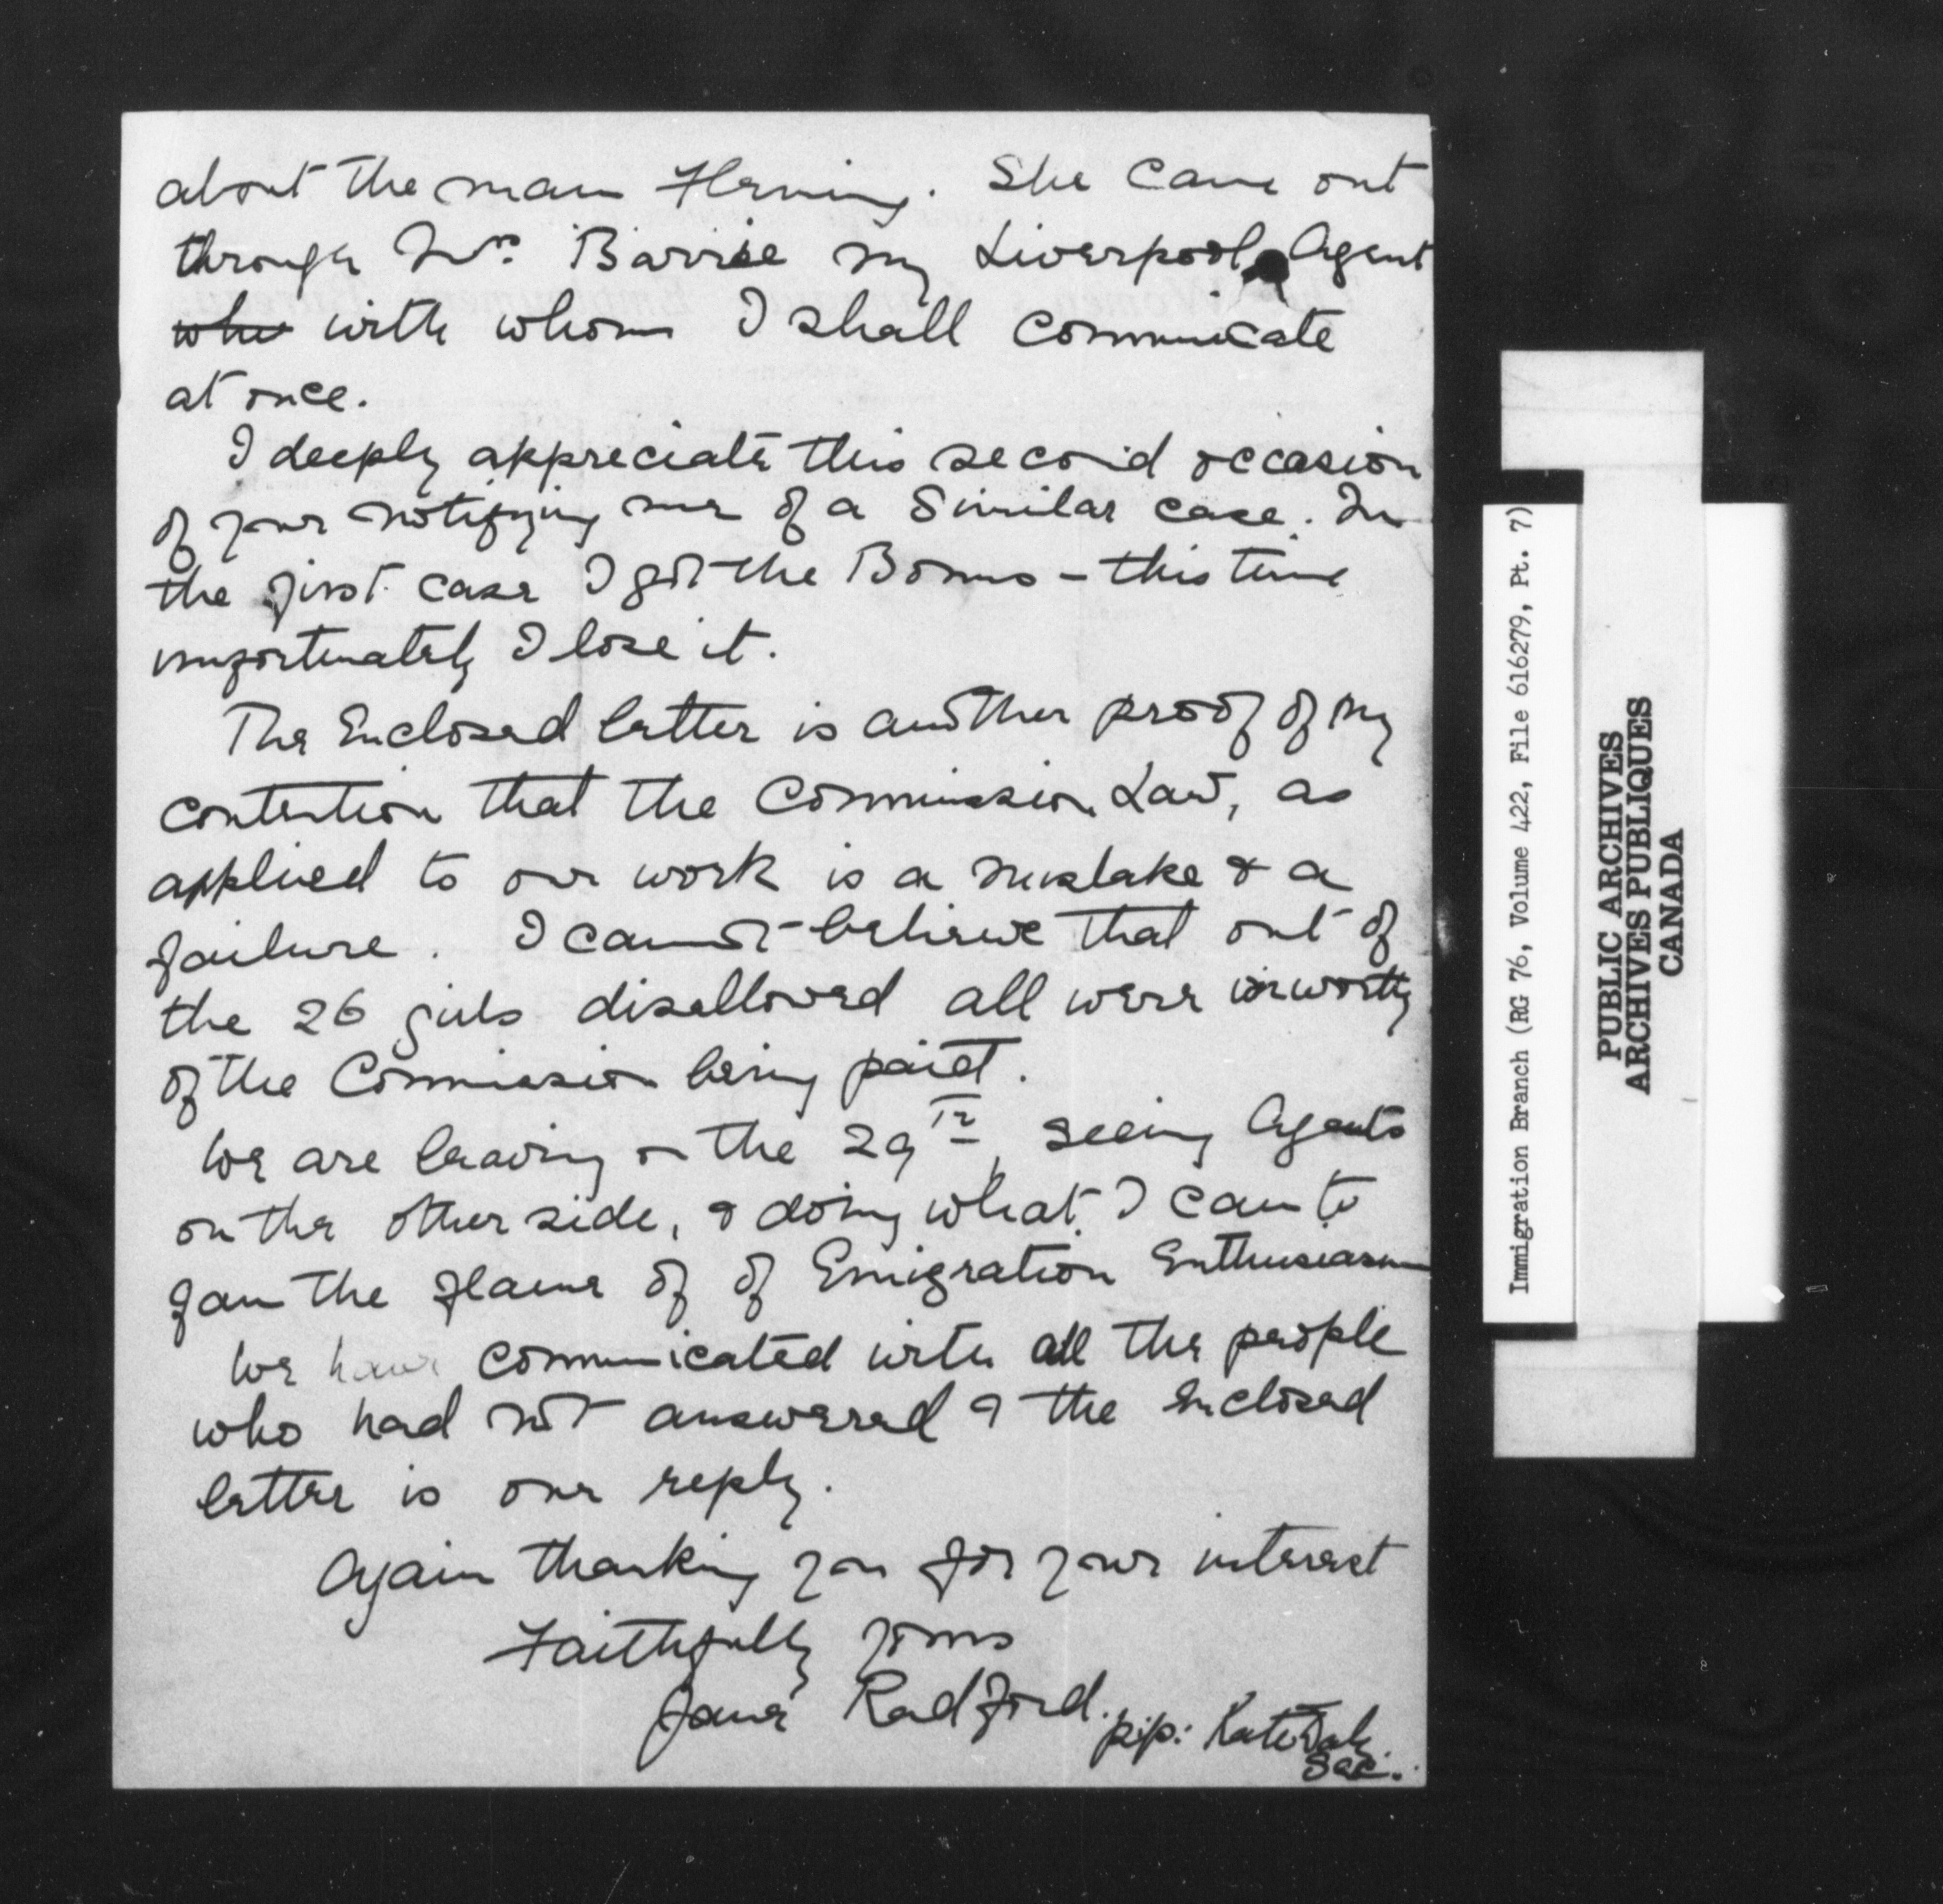 about the man Fleming. She came out
through Mrs. Barrie my Liverpool Agent
who with whom I shall communicate
at once.
I deeply appreciate this second occasion
of your notifying me of a similar case. In
the first case I got the Bonus – this time
unfortunately I lose it.
The Enclosed letter is another proof of my
contention that the Commission Law, as
applied to our work is a mistake & a
failure. I cannot believe that out of
the 26 girls disallowed all were unworthy
of the Commission being paid.
We are leaving on the 29th, seeing Agents
on the other side, & doing what I can to
fan the flame of of Emigration Enthusiasm
We have communicated with all the people
who had not answered & the Enclosed
letter is one reply.
Again thanking you for your interest
Faithfully yours
Jane Radford.
p.p: Kate Daly.
Sec.
Immigration Branch (RG 76, Volume 422, File 616279, Pt. 7)
PUBLIC ARCHIVES
ARCHIVES PUBLIQUES
CANADA